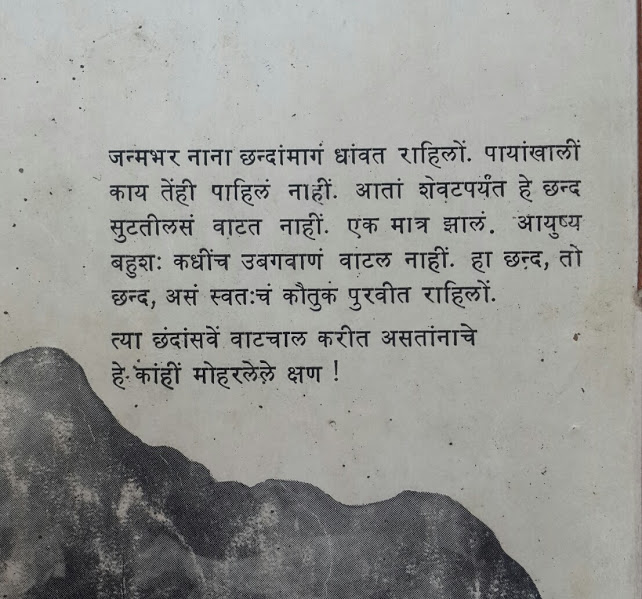 जन्मभर नाना छन्दांमागं धांवत राहिलों. पायांखालीं
काय तेंही पाहिलं नाहीं. आतां शेवटपर्यंत हे छन्द
सुटतीलसं वाटत नाहीं. एक मात्र झालं. आयुष्य
बहुशः कधींच उबगवाणं वाटल नाहीं. हा छन्द, तो
छन्द, असं स्वतःचं कौतुक पुरवीत राहिलों.
त्या छंदांसवें वाटचाल करीत असतांनाचे
हे कांहीं मोहरलेले क्षण !